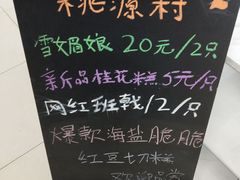 桃源村
雪媚娘 20元/2只
新品桂花糕 5元/只
网红班戟/2/只
爆款海盐脆脆
红豆士刀糕
欢迎品尝